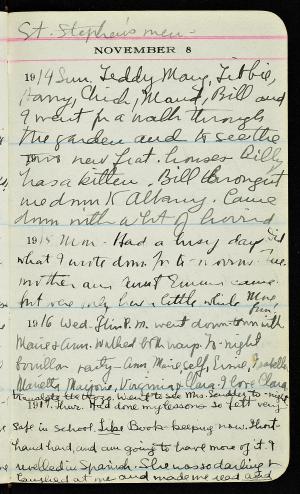 St. Stephen's men.
NOVEMBER 8
1914 Sun. Teddy, Marg, Libbie,
Harry, Chick, Maud, Bill and
I went for a walk through
the garden and to see the
new frat. houses. Billy
has a kitten. Bill brought
me down to Albany. Came
down with a lot of
1915 Mon. Had a busy day. Did
what I wrote down for to-
mother and Aunt Emma came
but were only here a little while.
1916 Wed. This P.m. went down town with
Marie & Ann. Walked both ways. To-night
bouillon party - Ann, Marie, self, Ernie, Isabella
Marietta, Marjorie, Virginia & Clara. I love Clara
Went to see Mrs. to-night
1917 Thur. Had done my lessons so felt very
safe in school. Like Book-keeping now. Short
hand hard, and am going to have more of it. I
revelled in Spanish. She was so darling &
laughed at me and made me read and